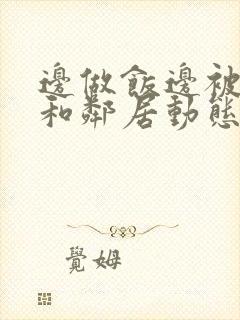 邊做飯邊被
和鄰居動態
覺姆